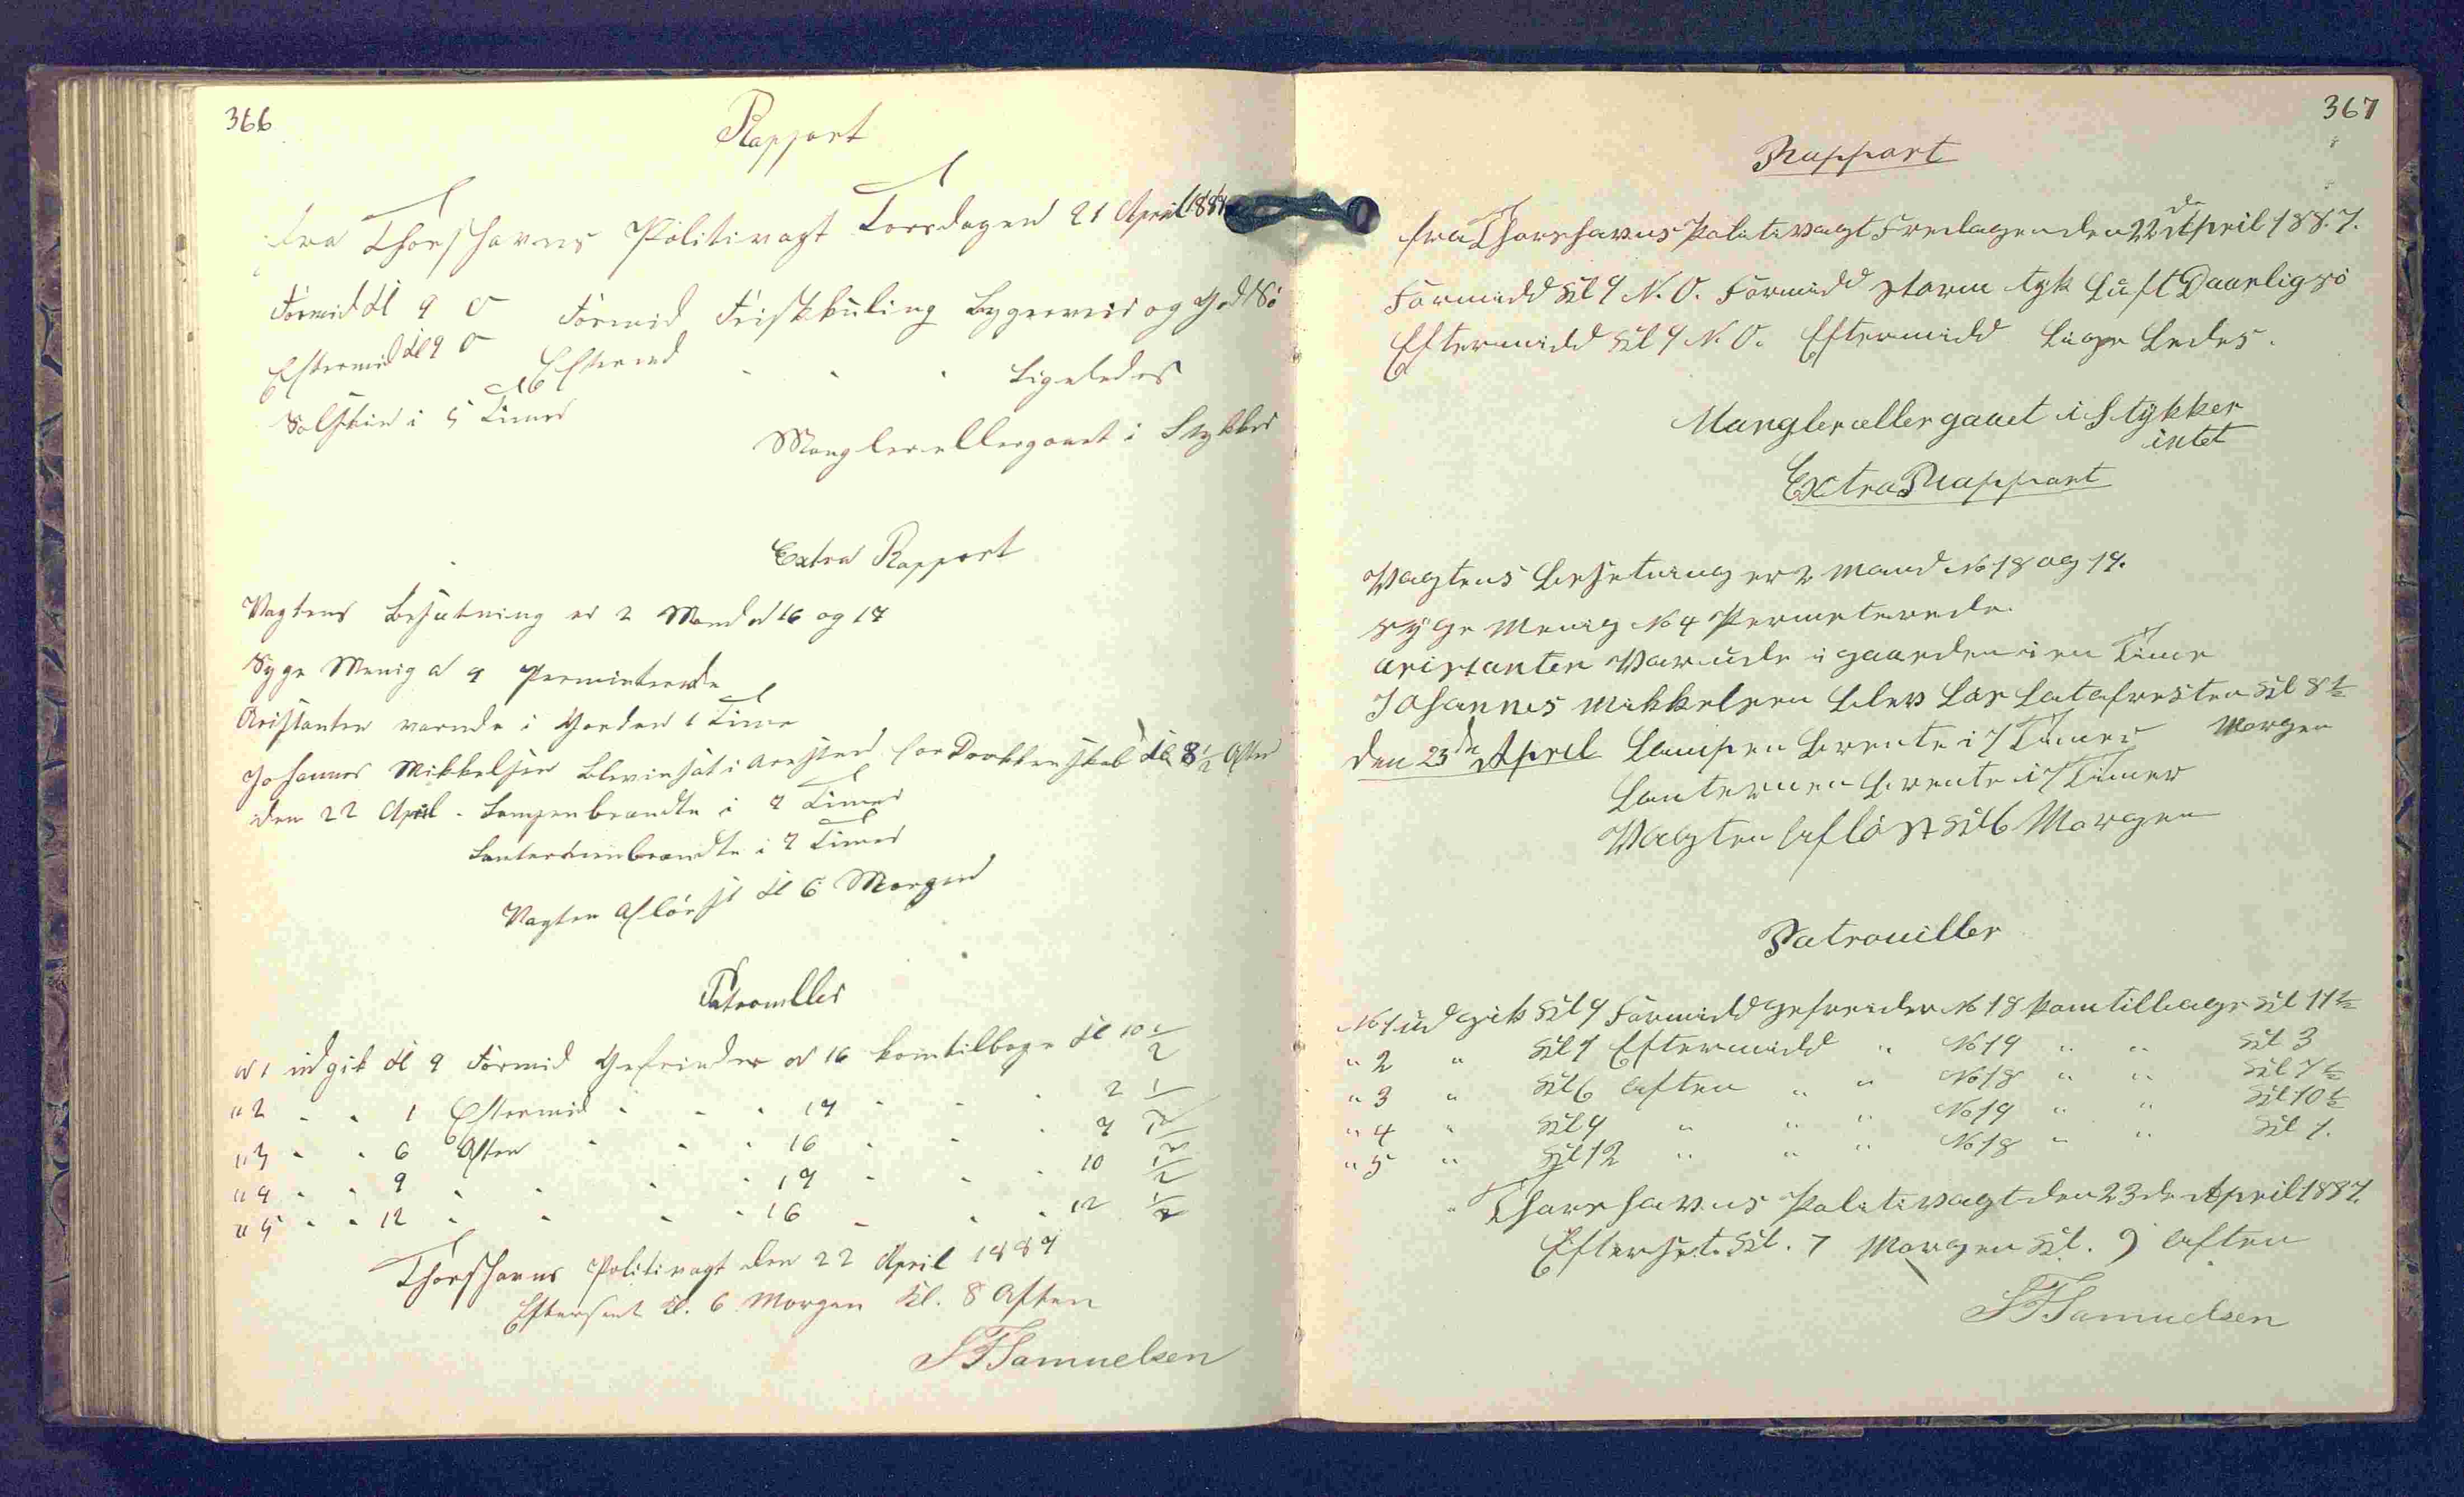 366
Rapport
fra Thorshavns Politivagt Torsdagen 21 April 1887
Formid Kl 9 O Formid Friskkuling Bygeveir og God Sö
Eftermid Kl 9 O Eftermd " " " Ligeledes
Solskin i 5 Timer
Mangler eller gaaet i Stykker
Extra Rapport
Vagtens Besætning er 2 Mand No 16 og 17
Syge Menig No 4 Permiterede
Aristanten varude i Gaarden 1 Time
Johannes Mikkelsen Blev insat i Aresten for Drukkenskab Kl 8 1/2 Aften
den 22 April. Lampen brændte i 7 Timer
Lanternen brændte i 7 Timer
Vagten Aflöst Kl 6 Morgen
Patrouller
No 1 udgik Kl 9 Formid Gefreider No 16 kom tilbage Kl 10 1/2
" 2 " " 1 Eftermid " " " 17 " " " 2 1/2
" 3 " " 6 Aften " " " 16 " " " 7 1/2
" 4 " " 9 " " " " 17 " " " 10 1/2
" 5 " " 12 " " " " 16 " " " 12 1/2
Thorshavns Politivagt den 22 April 1887
Efterset Kl. 6 Morgen Kl. 8 Aften
SFSamuelsen
367
Rappart
fra Thorshavns Politivagt Fredagen den 22de April 1887.
Formidd Kl 9 N. O. Formidd Storm tyk Luft Daarlig sö
Eftermidd Kl 9 N. O. Eftermidd Lige Ledes.
Mangler eller gaaet i Stykker
intet
Extra Rappart
Vagtens Besetning er 2 Mand No 18 og 19.
Syge Menig No 4 Permeterede.
Aristanten Var ude i gaarden i en Time
Johannes Mikkelsen Blev Lös Lat af resten Kl 8 1/2
Morgen
den 23de April Lampen Brente i 7 Timer
Lanternen Brente i 7 Timer
Vagten Aflöst Kl 6 Morgen
Patrouiller
No 1 ud gik Kl 9 Formidd Gefreider No 18 kom tilbage Kl 11 1/2
" 2 " Kl 1 Eftermidd " No 19 " " Kl 3
" 3 " Kl 6 Aften " " No 18 " " Kl 7 1/2
" 4 " Kl 9 " " " No 19 " " Kl 10 1/2
" 5 " Kl 12 " " " No 18 " " Kl 1.
Thorshavns Politivagt den 23de April 1887.
Efterset. Kl. 7 Morgen Kl. 9 Aften
SFSamuelsen